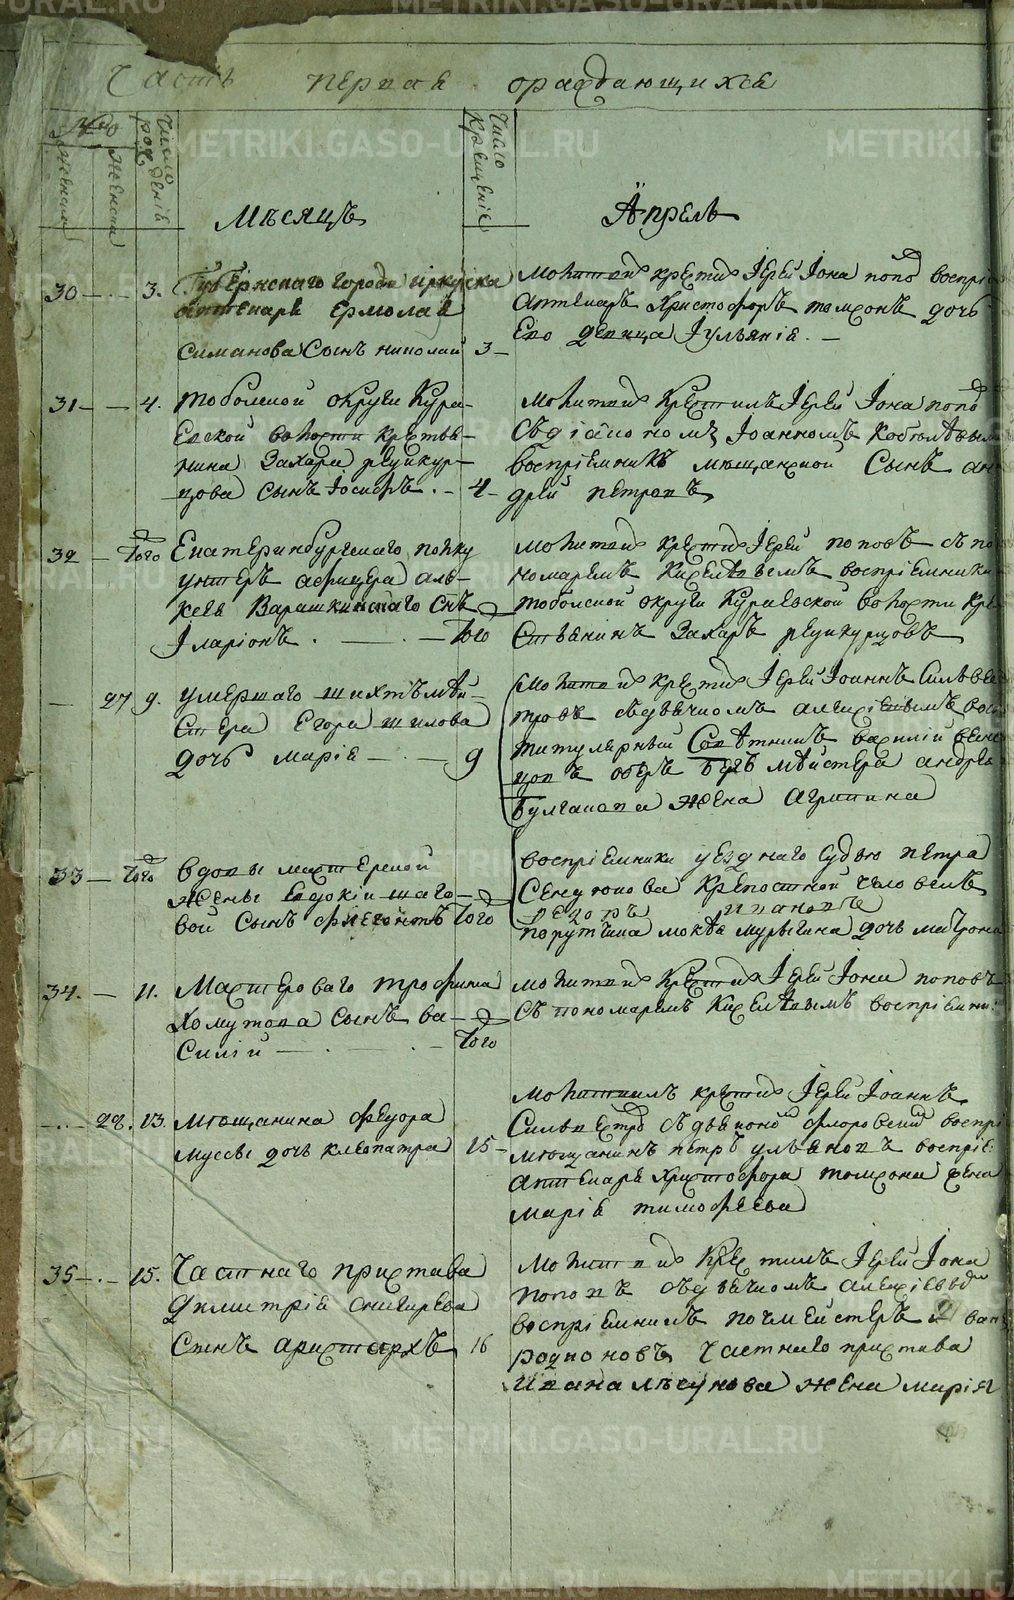 Часть первая ораждающихся
№о
Мужеска
Женска
Число рождения
Число крещения
Мѣсяцъ
Апрель
30 — 3. Губернскаго города иркуцка
аптекаря Ермолая
Симанова Сынъ николай 3
молитвил крестил Іерей Іона попо воспрі
Аптекарь Христофоръ томсонъ дочь
Его девица Іульянія.
31 — 4. тобольской округи Кура-
Евской волости крестья-
нина Захара
цова сынъ Іосифъ. — 4
молитвил Крестилъ Іерей Іона попо
Съ діакономъ Іоанномъ
воспріемникъ мещанской Сынъ ан
дрей петровъ
32 — того Екатеринбургскаго полку
унтеръ афицера але-
ксея Варашкинскаго Снъ
Іларіонъ — того
молитвил крестил Іерей поповъ съ по
номаремъ Киселевымъ воспріемники
тобольской округи Кураевской волости Кре
Стьянинъ Захаръ
27 9. умершаго шихтъмей-
Стера Егора шилова
дочь марія — 9
молитвил крестил Іерей Іоаннъ Сильве
тровъ съдьячкомъ алексіевымъ вос
титулярный Советникъ василий
цовъ оберъ Бергъ мейстера андрея
Булгакова жена агрипина
33 — того вдовы мастерской
жены Евдокіи шаго-
вой Сынъ флегонтъ того
воспріемники уезднаго Судью петра
Сендюкова крепостной человекъ
Федоръ ивановъ
порутчика мокѣя мурыгина дочь матрона
34. — 11. Мастероваго трофима
Хомутова сынъ ва-
силій — того
молитвил Крестил Іерей Іона поповъ
Съ пономаремъ Киселевымъ воспріемни
28. 13. мещанина федора
мусеы дочь клеопатра 15
молитвилъ крестил Іерей Іоаннъ
Сильвестро съдьякономъ флоровским воспрі
мещанинъ петръ ульяновъ воспріе:
аптекаря христофора томсона жена
марія тимофеева
35 — 15. Частнаго пристава
димитрія снигирева
Сынъ аристархъ 16
Молитвил Крестилъ Іерей Іона
поповъ съдьячкомъ алексіевым
воспріемникъ почмейстеръ
родионовъ Частнаго пристава
Ивана лѣсунова жена марія
METRIKI.GASO-URAL.RU